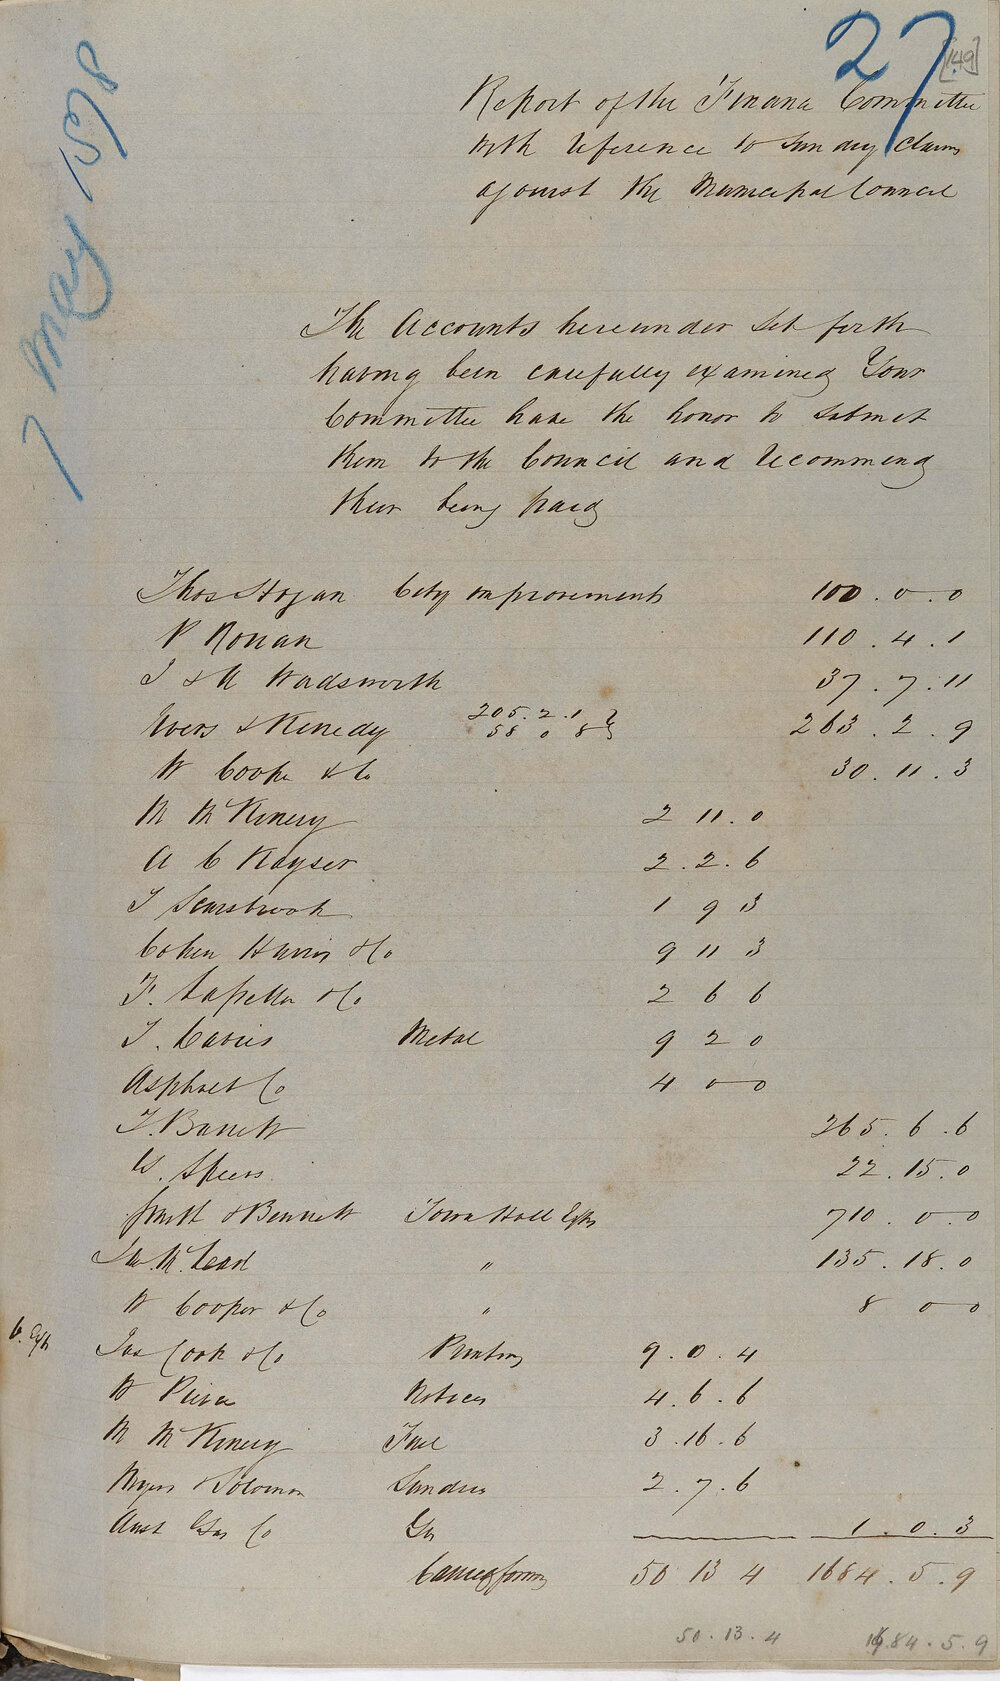 27
[149]
7 May 1878
Report of the Finance Committee
with reference to Sundry Claims
against the Municipal Council
The Accounts hereunder set forth
having been carefully examined Your
Committee have the honor to submit
them to the Council and recommend
their being paid
Thos Hogan City improvements 100 . 0 . 0
P Ronan 110 . 4 . 1
J & A Wadsworth 37 . 7 . 11
Ivers & Kenedy 205 . 2 . 1 263 . 2 . 9
58 0 8
W Cooper & Co 30 . 11 . 3
M McKinery 2 11 . 0
A C Kayser 2 . 2 . 6
J Scarsbrook 1 9 3
Cohen Harris & Co 9 11 3
F. & Co 2 6 6
T. Davies Metal 9 2 0
Asphalt Co 4 0 0
T. Barrett 265 . 6 . 6
G. Speers 22 . 15 . 0
Smith & Bennett Town Hall Exps 710 . 0 . 0
Jas. M. Lead " 135 . 18 . 0
W Cooper & Co " 8 0 0
C. Exps
Jas Cook & Co Printing 9 . 0 . 4
W Peirce Notices 4 . 6 . 6
M McKinery Fuel 3 . 16 . 6
Myers & Solomon Sundries 2 . 7 . 6
Aust Gas Co Gas 1 . 0 . 3
Carried forward 50 13 4 1684 . 5 . 9
50 . 13 . 4 1684 . 5 . 9